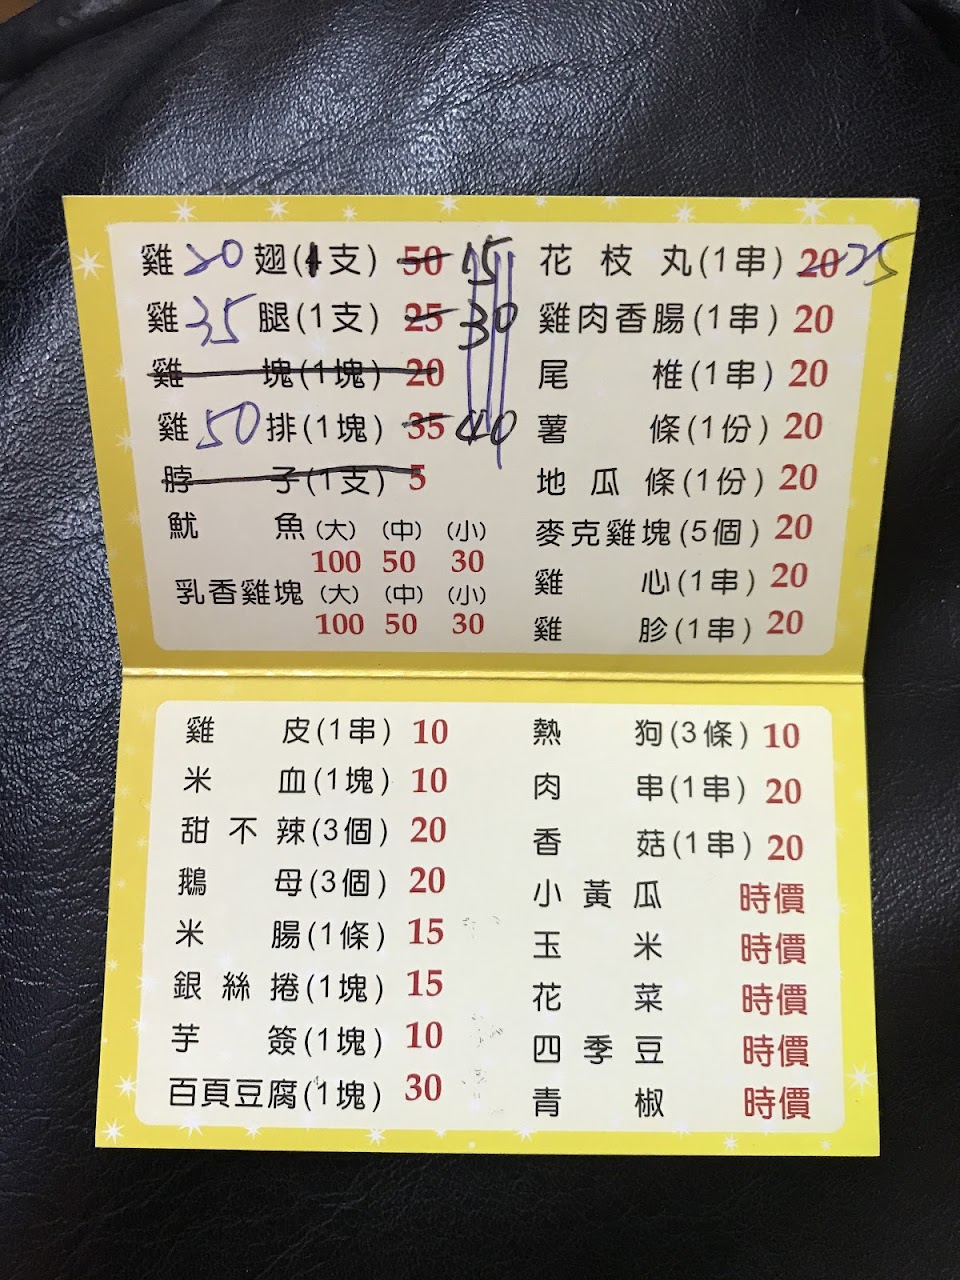 雞20翅(1支) 50 15
雞35腿(1支) 25 30
雞塊(1塊) 20
雞50排(1塊) 35 40
脖子(1支) 5
魷魚(大) (中) (小)
100 50 30
乳香雞塊(大) (中) (小)
100 50 30
花枝丸(1串) 20 25
雞肉香腸(1串) 20
尾椎(1串) 20
薯條(1份) 20
地瓜條(1份) 20
麥克雞塊(5個) 20
雞心(1串) 20
雞胗(1串) 20
雞皮(1串) 10
米血(1塊) 10
甜不辣(3個) 20
鵝母(3個) 20
米腸(1條) 15
銀絲捲(1塊) 15
芋簽(1塊) 10
百頁豆腐(1塊) 30
熱狗(3條) 10
肉串(1串) 20
香菇(1串) 20
小黃瓜 時價
玉米 時價
花菜 時價
四季豆 時價
青椒 時價